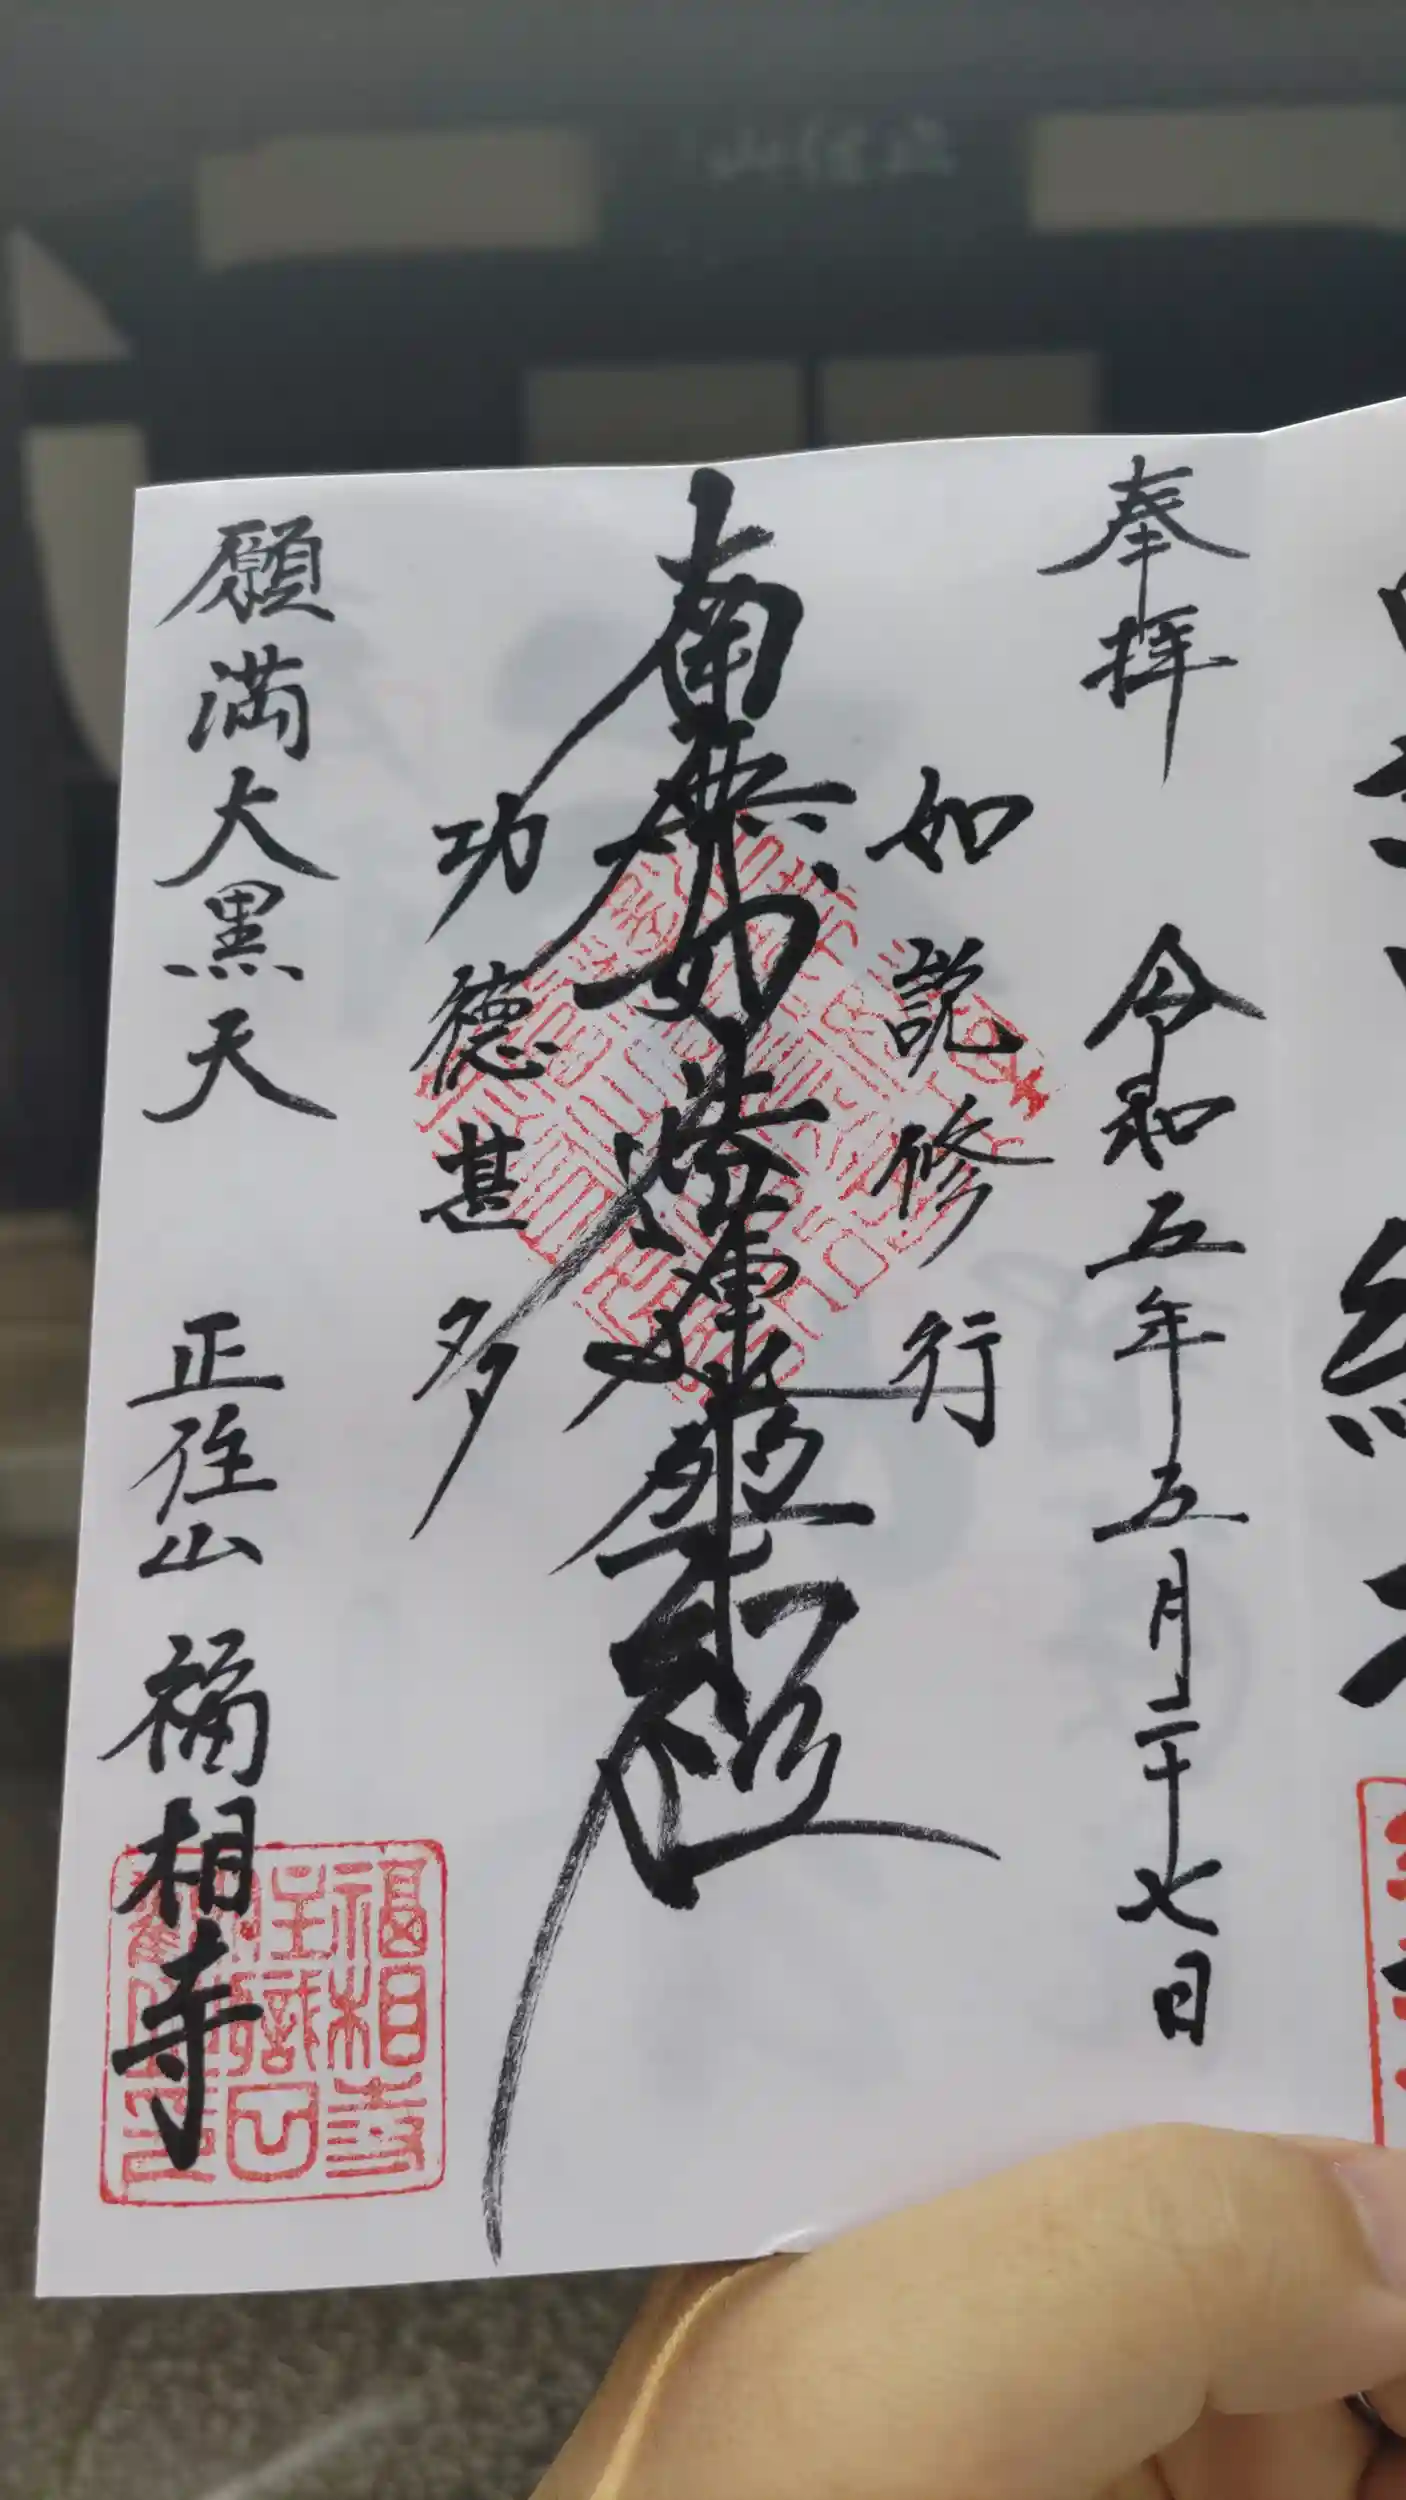 奉拝　令和五年五月二十七日
如説修行
南無妙法蓮華経
功徳甚多
願満大黒天　正住山　福相寺
福相寺